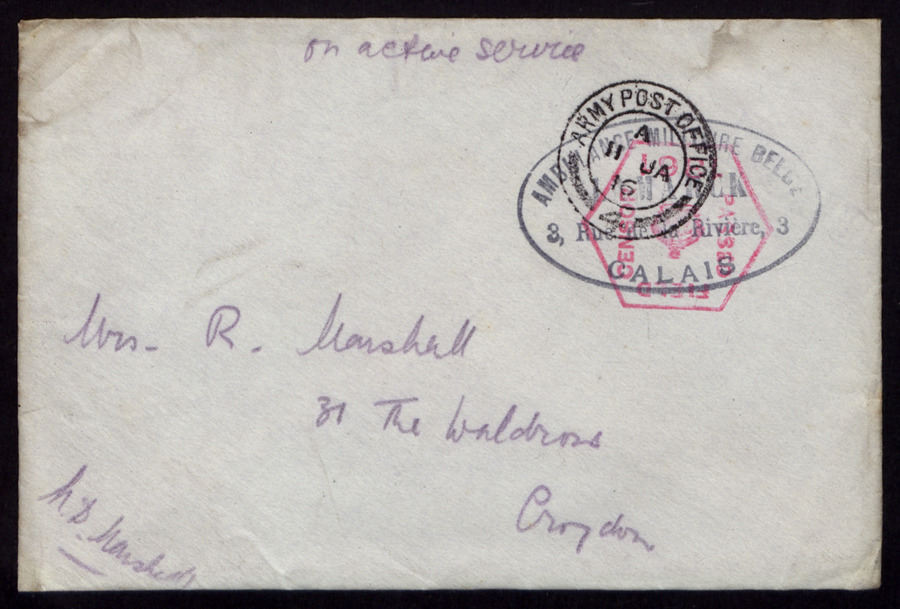 on active service
ARMY POST OFFICE
A
11 JA
16
AMBULANCE MILITAIRE BELGE
3, Rue de la Rivière, 3
CALAIS
PASSED
CENSOR
Mrs. R. Marshall
31 The Waldrons
Croydon
Marshall